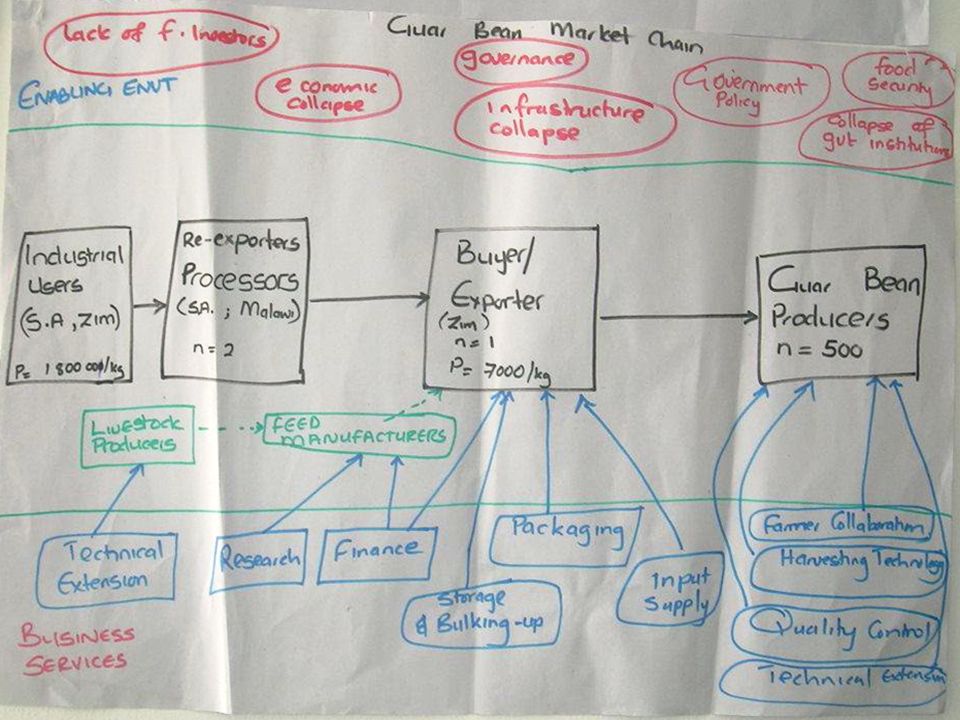 Guar Bean Market Chain
Lack of f. Investors
ENABLING ENVT
economic
collapse
governance
infrastructure
collapse
Government
Policy
food
Security
Collapse of
gvt institutions
Industrial
Users
(S.A, Zim)
P= 1800 000/kg
Re-exporters
Processors
(S.A. ; Malawi)
n= 2
Buyer/
Exporter
(Zim)
n= 1
P= 7000/kg
Guar Bean
Producers
n = 500
LIVESTOCK
PRODUCERS
FEED
MANUFACTURERS
Technical
Extension
Research
Finance
Packaging
Storage
& Bulking-up
Input
Supply
Farmer Collaboration
Harvesting Technology
Quality Control
Technical Extension
BUSINESS
SERVICES